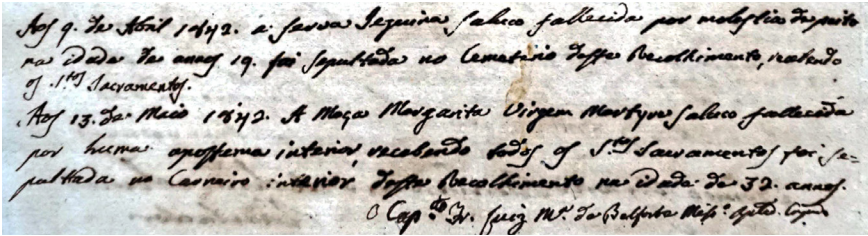 Aos 9. de Abril 1842. a serva Iequina saluco fallecida por molestia de peito
na idade de annos 19. foi sepultada no Cemeterio deste Recolhimento, recebendo
os S.tos Sacramentos.
Aos 13. de Maio 1842. A Moça Margarita Virgem Martyre saluco fallecida
por huma apostema interior, recebendo todos os S.tos Sacramentos foi se-
pultada no Carneiro interior deste Recolhimento na idade de 32. annos.
O Cap.am Fr. Luiz M.a de Belforte Miss.o